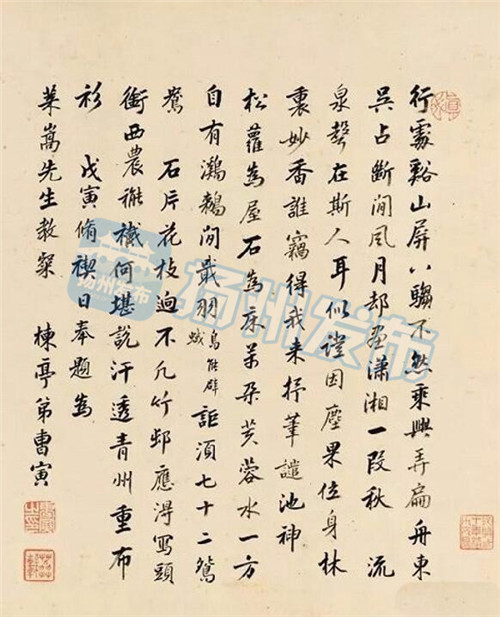 行處谿山屏八騶不然乘興弄扁舟東
吳占斷閒風月却畫瀟湘一段秋 流
泉聲在斯人耳似證因塵果位身林
裏妙香誰竊得我来抒筆譴池神
松蘿為屋石為床萬朵芙蓉水一方
自有鸂鶒閒 羽鳥能辟蜮詎須七十二鴛
鴦 石片花枝迥不凡竹邨應得寫頭
銜西農褦襶何堪說汗透青州重布
衫 戊寅脩禊日奉題為
萊嵩先生教粲 楝亭弟曹寅
扬州发布
扬州发布